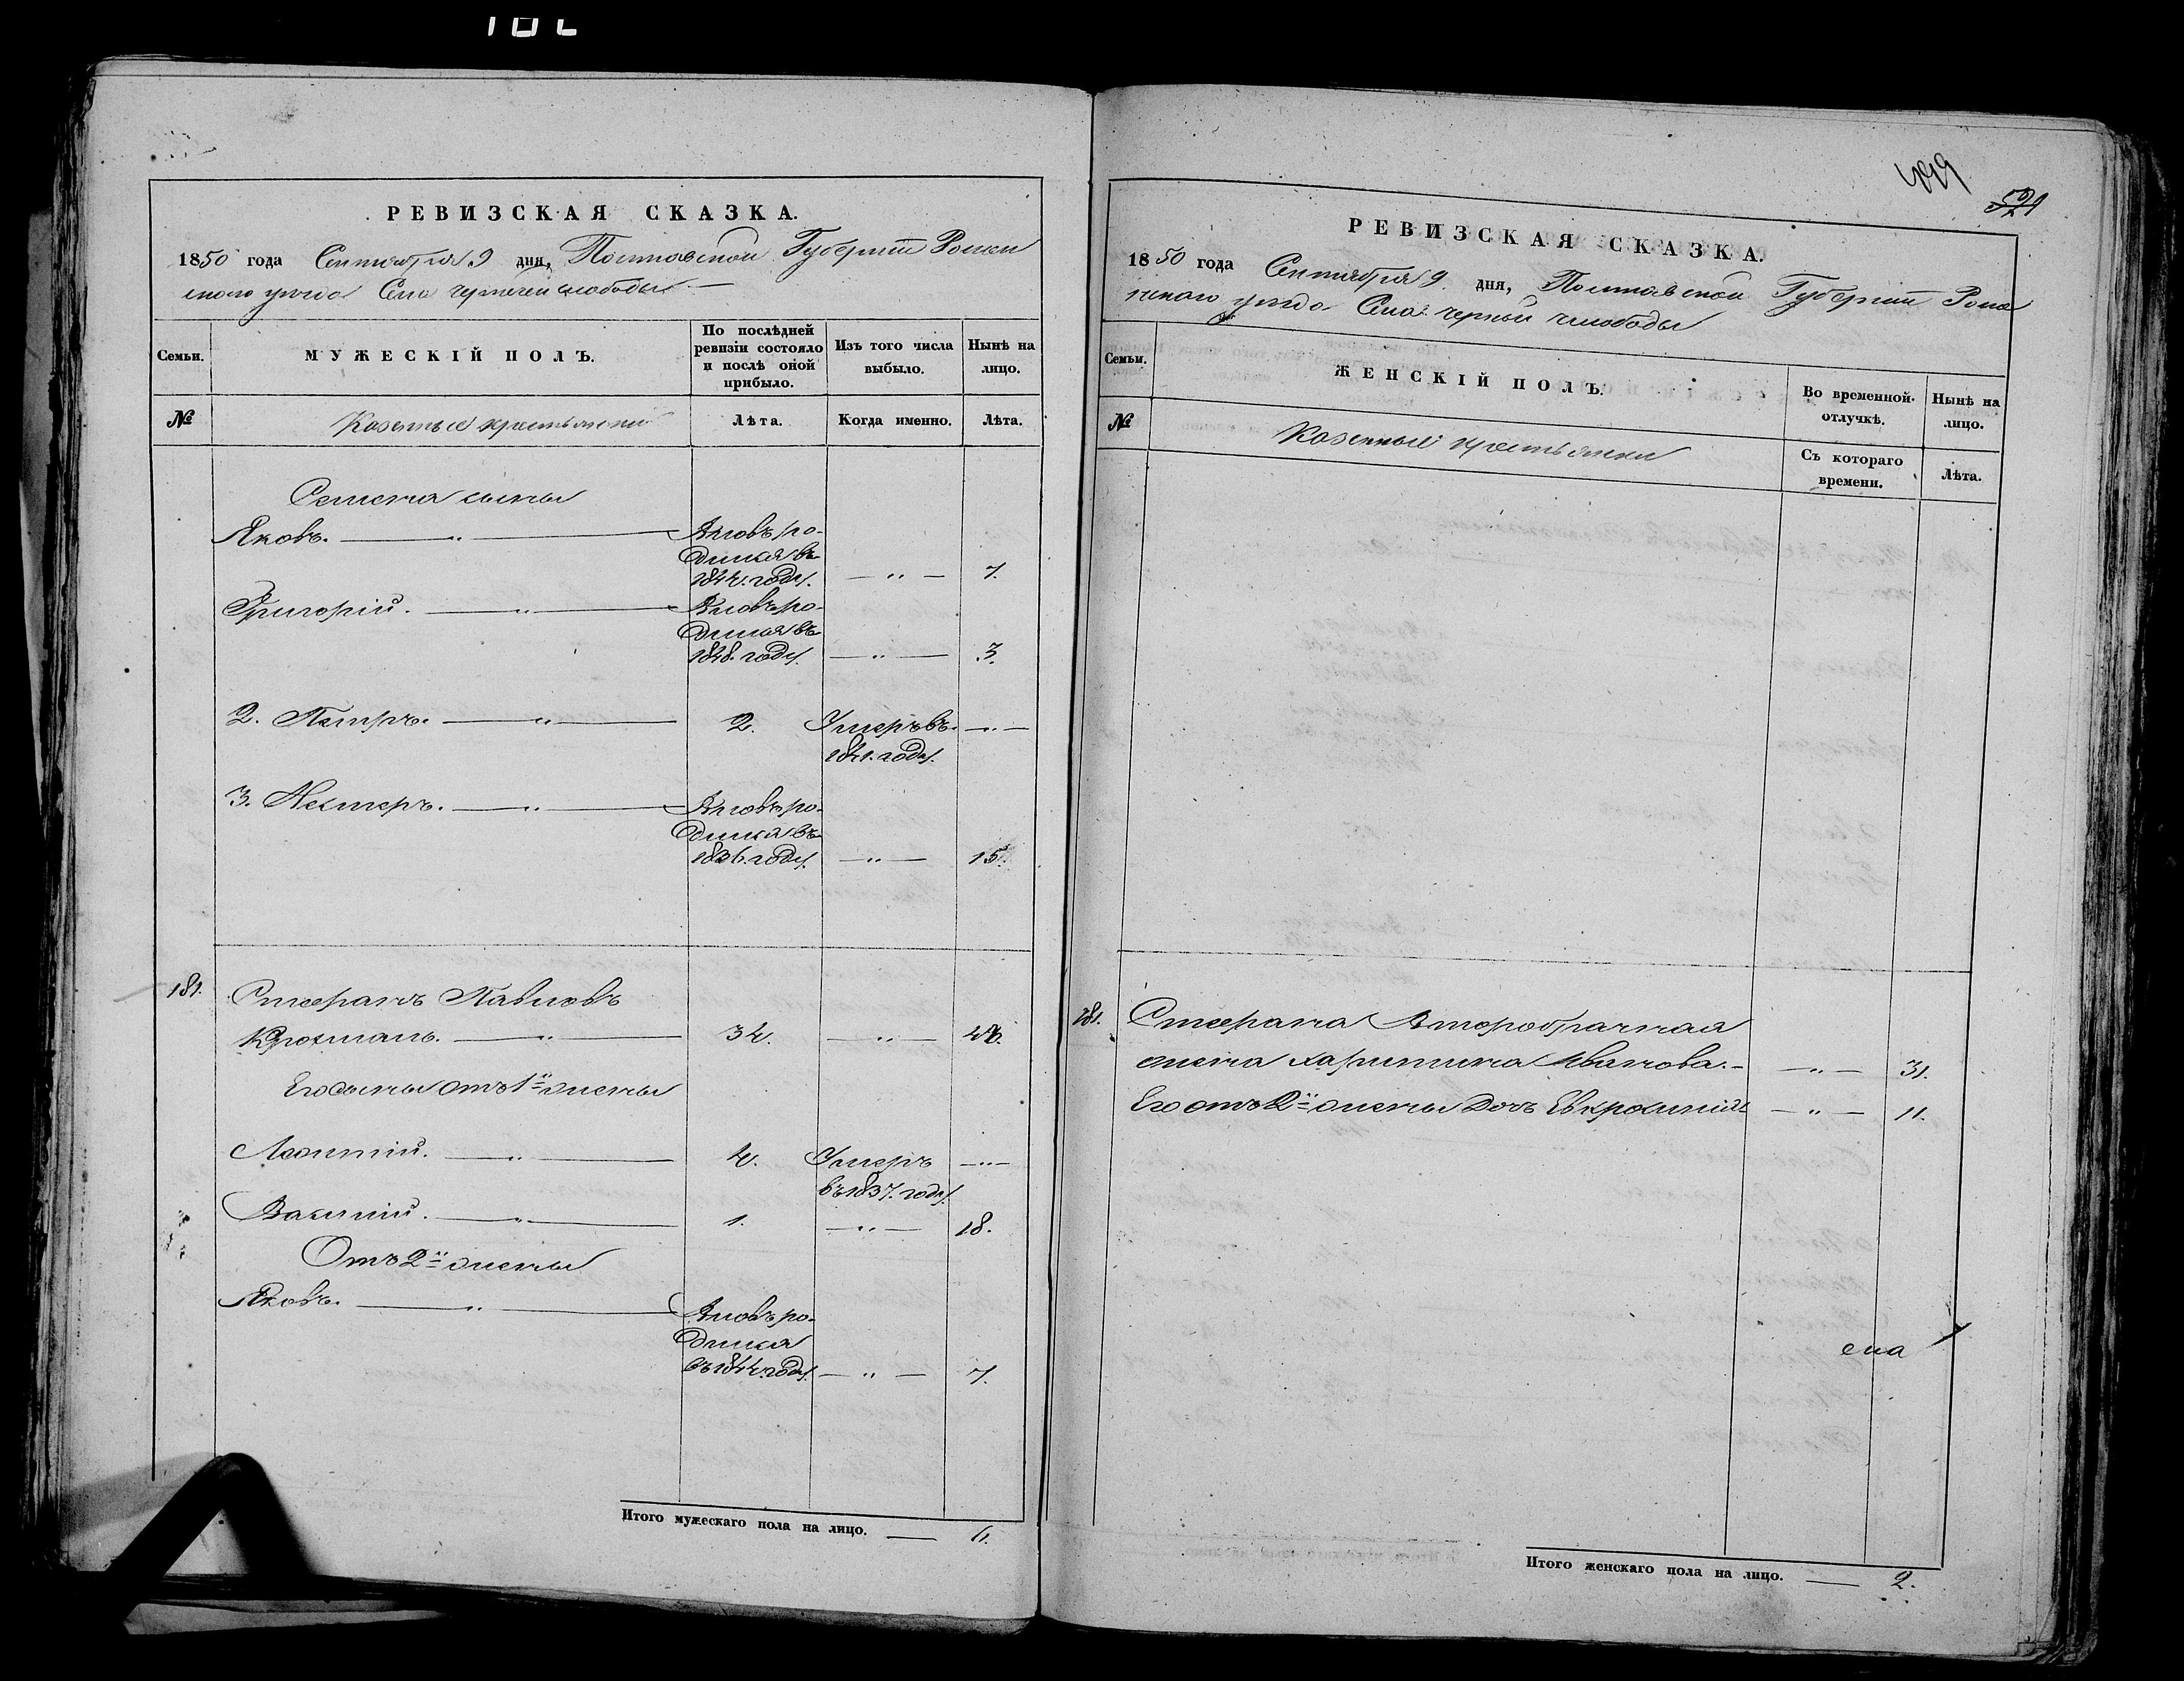 РЕВИЗСКАЯ СКАЗКА.
1850 года Сентября 9 дня, Полтавской Губерніи Ромен
скаго уезда Села
Семьи.
МУЖЕСКІЙ ПОЛЪ.
По послѣдней
ревизіи состояло
и послѣ оной
прибыло.
Изъ того числа
выбыло.
Нынѣ на
лицо.
№
Казенные крестьяне
Лѣта.
Когда именно.
Лѣта.
Семена сыны
Яковъ. — " — Вновь ро-
дился въ
1844. году. — " — 7.
Григорій. — " — Вновь ро-
дился въ
1848. году. — " — 3.
2. Петръ. — " — 2. Умеръ въ — " —
1841. году.
3. Нестеръ. — " — Вновь ро-
дился въ
1836. году. — " — 15.
181. Стефанъ Павловъ
— " — 34. — " —
Его сыны отъ 1й жены
Леонтій. — " — 4. Умеръ — " —
въ 1837. году.
Василій. — " — 1. — " — 18.
Отъ 2й жены
Яковъ. — " — Вновь ро-
дился
въ 1844. году. — " — 7.
Итого мужескаго пола на лицо. — 6.
499
521
РЕВИЗСКАЯ СКАЗКА.
1850 года Сентября 9 дня, Полтавской Губерніи Роме
нскаго уезда Села
Семьи.
ЖЕНСКІЙ ПОЛЪ.
Во временной
отлучкѣ.
Нынѣ на
лицо.
№
Казенные крестьянки
Съ котораго
времени.
Лѣта.
181. Стефана Второбрачная
жена Харитина Иванова. — " — 31.
Его отъ 2й жены дочь Евфросинія — " — 11.
Итого женскаго пола на лицо. — 2.